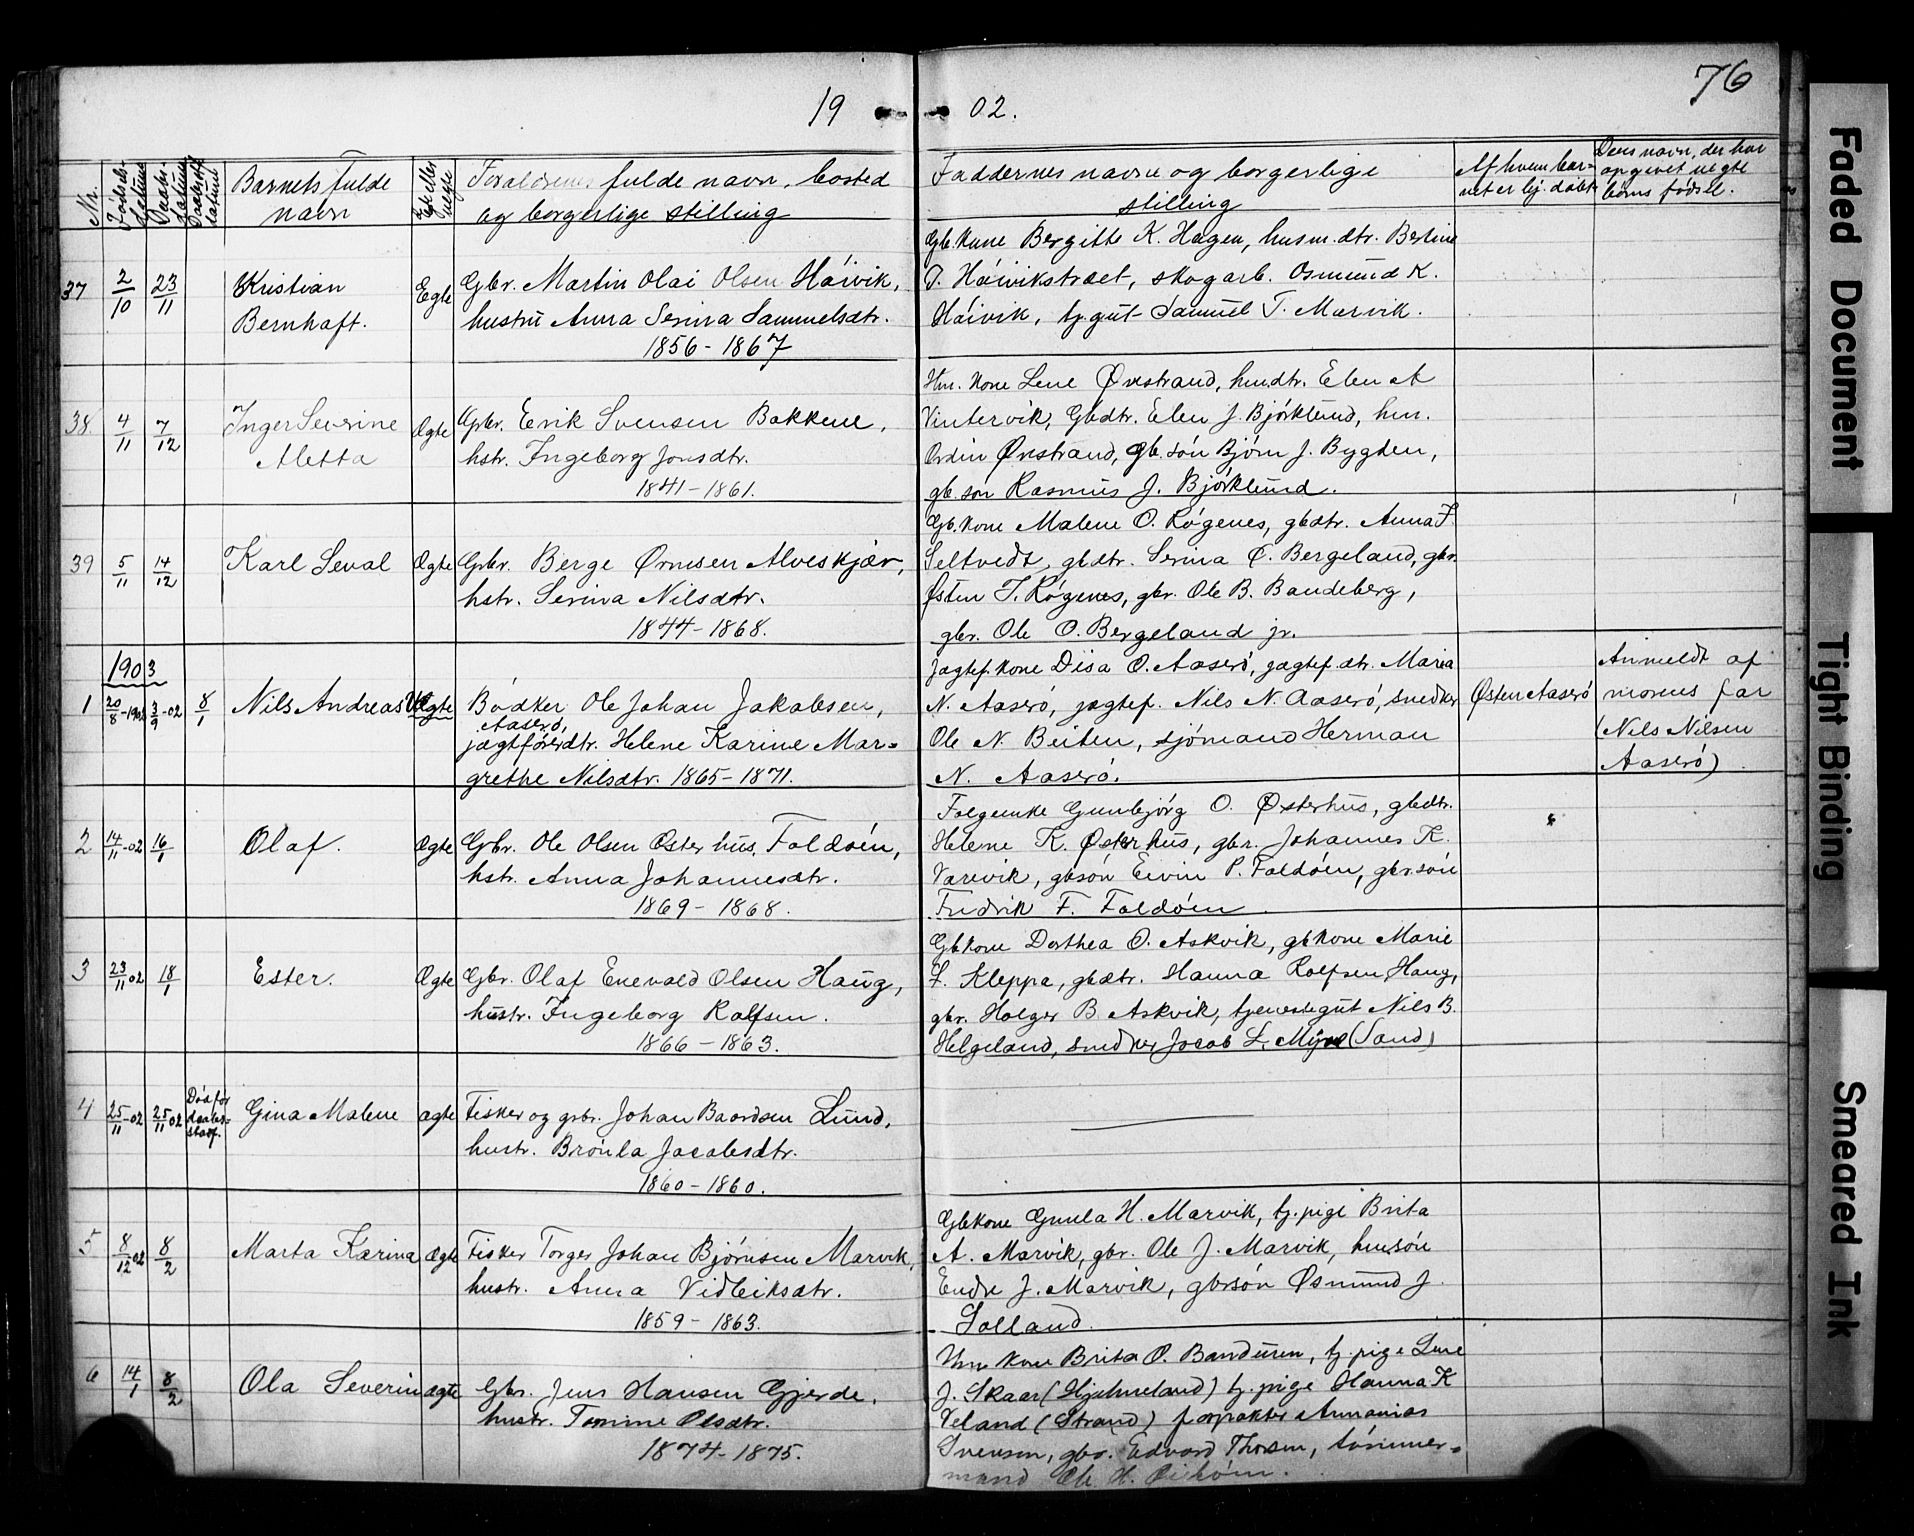 76
19 02.
Nr.
Fødsels-datum
Daabs-datum
Barnets fulde navn
Egte eller uegte
Forældrenes fulde navn, bosted og borgerlige stilling
Faddernes navne og borgerlige stilling
Af hvem barnet er hj. døbt
Dens navn, der har opgivet uegte børns fødsel.
37 2/10 23/11 Kristian Egte Gbr. Martin Olai Olsen Høivik,
Bernhaft. hustru Anna Serina Samuelsdtr.
1856 - 1867
Gb. kone Bergitte K. Hagen, husm. dtr. Bertine
T. Høivikstræet, skogarb. Osmund K.
Høivik, tj. gut Samuel T. Marvik.
38. 4/11 7/12 Inger Severine Ægte Gbr. Erik Svensen Bakkene,
Aletta hstr. Ingeborg Jonsdtr.
1841 - 1861.
Hm. kone Lene Øvestrand, hmdtr. Elen
Vintervik, Gbdtr. Elen J. Bjørklund, hm.
Ordin Øvestrand, gb. søn Bjørn J. Bygden,
gb. søn Rasmus J. Bjørklund.
39 5/11 14/12 Karl Seval Ægte Gbr. Berge Ørnsen Alveskjær,
hstr. Serina Nilsdtr.
1844 - 1868.
Gb. kone Malene O. Røgenes, gbdtr. Anna F.
Seltvedt, gbdtr. Serina O. Bergeland, gbr.
Østen T. Røgenes, gbr. Ole B. Bandeberg,
gbr. Ole O. Bergeland jr.
1903
1 20/8 - 1902 3/9 - 02 8/1 Nils Andreas Uægte Bødker Ole Johan Jakobsen,
Aaserø,
jagtførerdtr. Helene Karine Mar=
grethe Nilsdtr. 1865 - 1871.
Jagtef. kone Disa O. Aaserø, jagtef. dtr. Maria
N. Aaserø, jagtef. Nils N. Aaserø, snedker
Ole N. Beiten, sjømand Herman
N. Aaserø.
Østen Aaserø
Anmeldt af
morens far
(Nils Nilsen
Aaserø)
2 14/11 - 02 16/1 Olaf. Ægte Gbr. Ole Olsen Østerhus, Foldøen,
hst. Anna Johannesdtr.
1869 - 1868.
Folgeenke Gunbjørg O. Østerhus, gbdtr.
Helene K. Østerhus, gbr. Johannes K.
Varevik, gbsøn Eivin P. Foldøen, gbr.søn
Fredrik F. Foldøen
3 23/11 02 18/1 Ester. Ægte Gbr. Olaf Enevald Olsen Haug,
hustr. Ingeborg Rolfsen.
1866 - 1863.
Gbkone Dorthea O. Askvik, gbkone Marie
L. Kleppa, gbdtr. Hanna Rolfsen Haug,
gbr. Holger B. Askvik, tjenestegut Nils B.
Helgeland, snedker Jacob L. Myre (Sand)
4 25/11 - 02 25/11 02 Død før daabs-stadf. Gina Malene ægte Fisker og gbr. Johan Baardsen Lund,
hustr. Brønla Jacobsdtr.
1860 - 1860.
5 8/12 02 8/2 Marta Karina Ægte Fisker Torger Johan Bjørnsen Marvik,
hustr. Anna Vidleiksdtr.
1859 - 1863.
Gbkone Gunla H. Marvik, tj. pige Brita
A. Marvik, gbr. Ole J. Marvik, hmsøn
Endre J. Marvik, gbrsøn Osmund J.
Solland.
6 14/1 8/2 Ola Severin ægte Gbr. Jens Hansen Gjerde,
hustr. Tomine Olsdtr.
1874 - 1875.
Hm kone Brita O. Bandüren, tj. pige Lene
J. Skaar (Hjelmeland) tj. pige Hanna K
Veland (Strand) forpakter Annanias
Svensen, gbr. Edvard Thorsen, tømmer=
mand Ole H.
Faded Document
Tight Binding
Smeared Ink